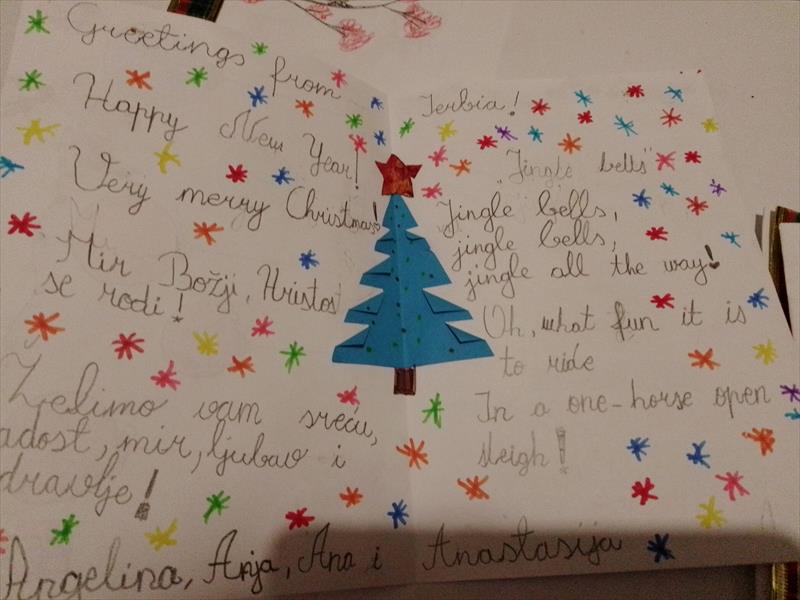 Greetings from Serbia!
Happy New Year!
Very merry Christmas!
Mir Božji, Hristos
se rodi!
Želimo vam sreću,
adost, mir, ljubav i
dravlje!
"Jingle bells"
Jingle bells,
jingle bells,
jingle all the way!
Oh, what fun it is
to ride
In a one-horse open
sleigh!
Angelina, Anja, Ana i Anastasija